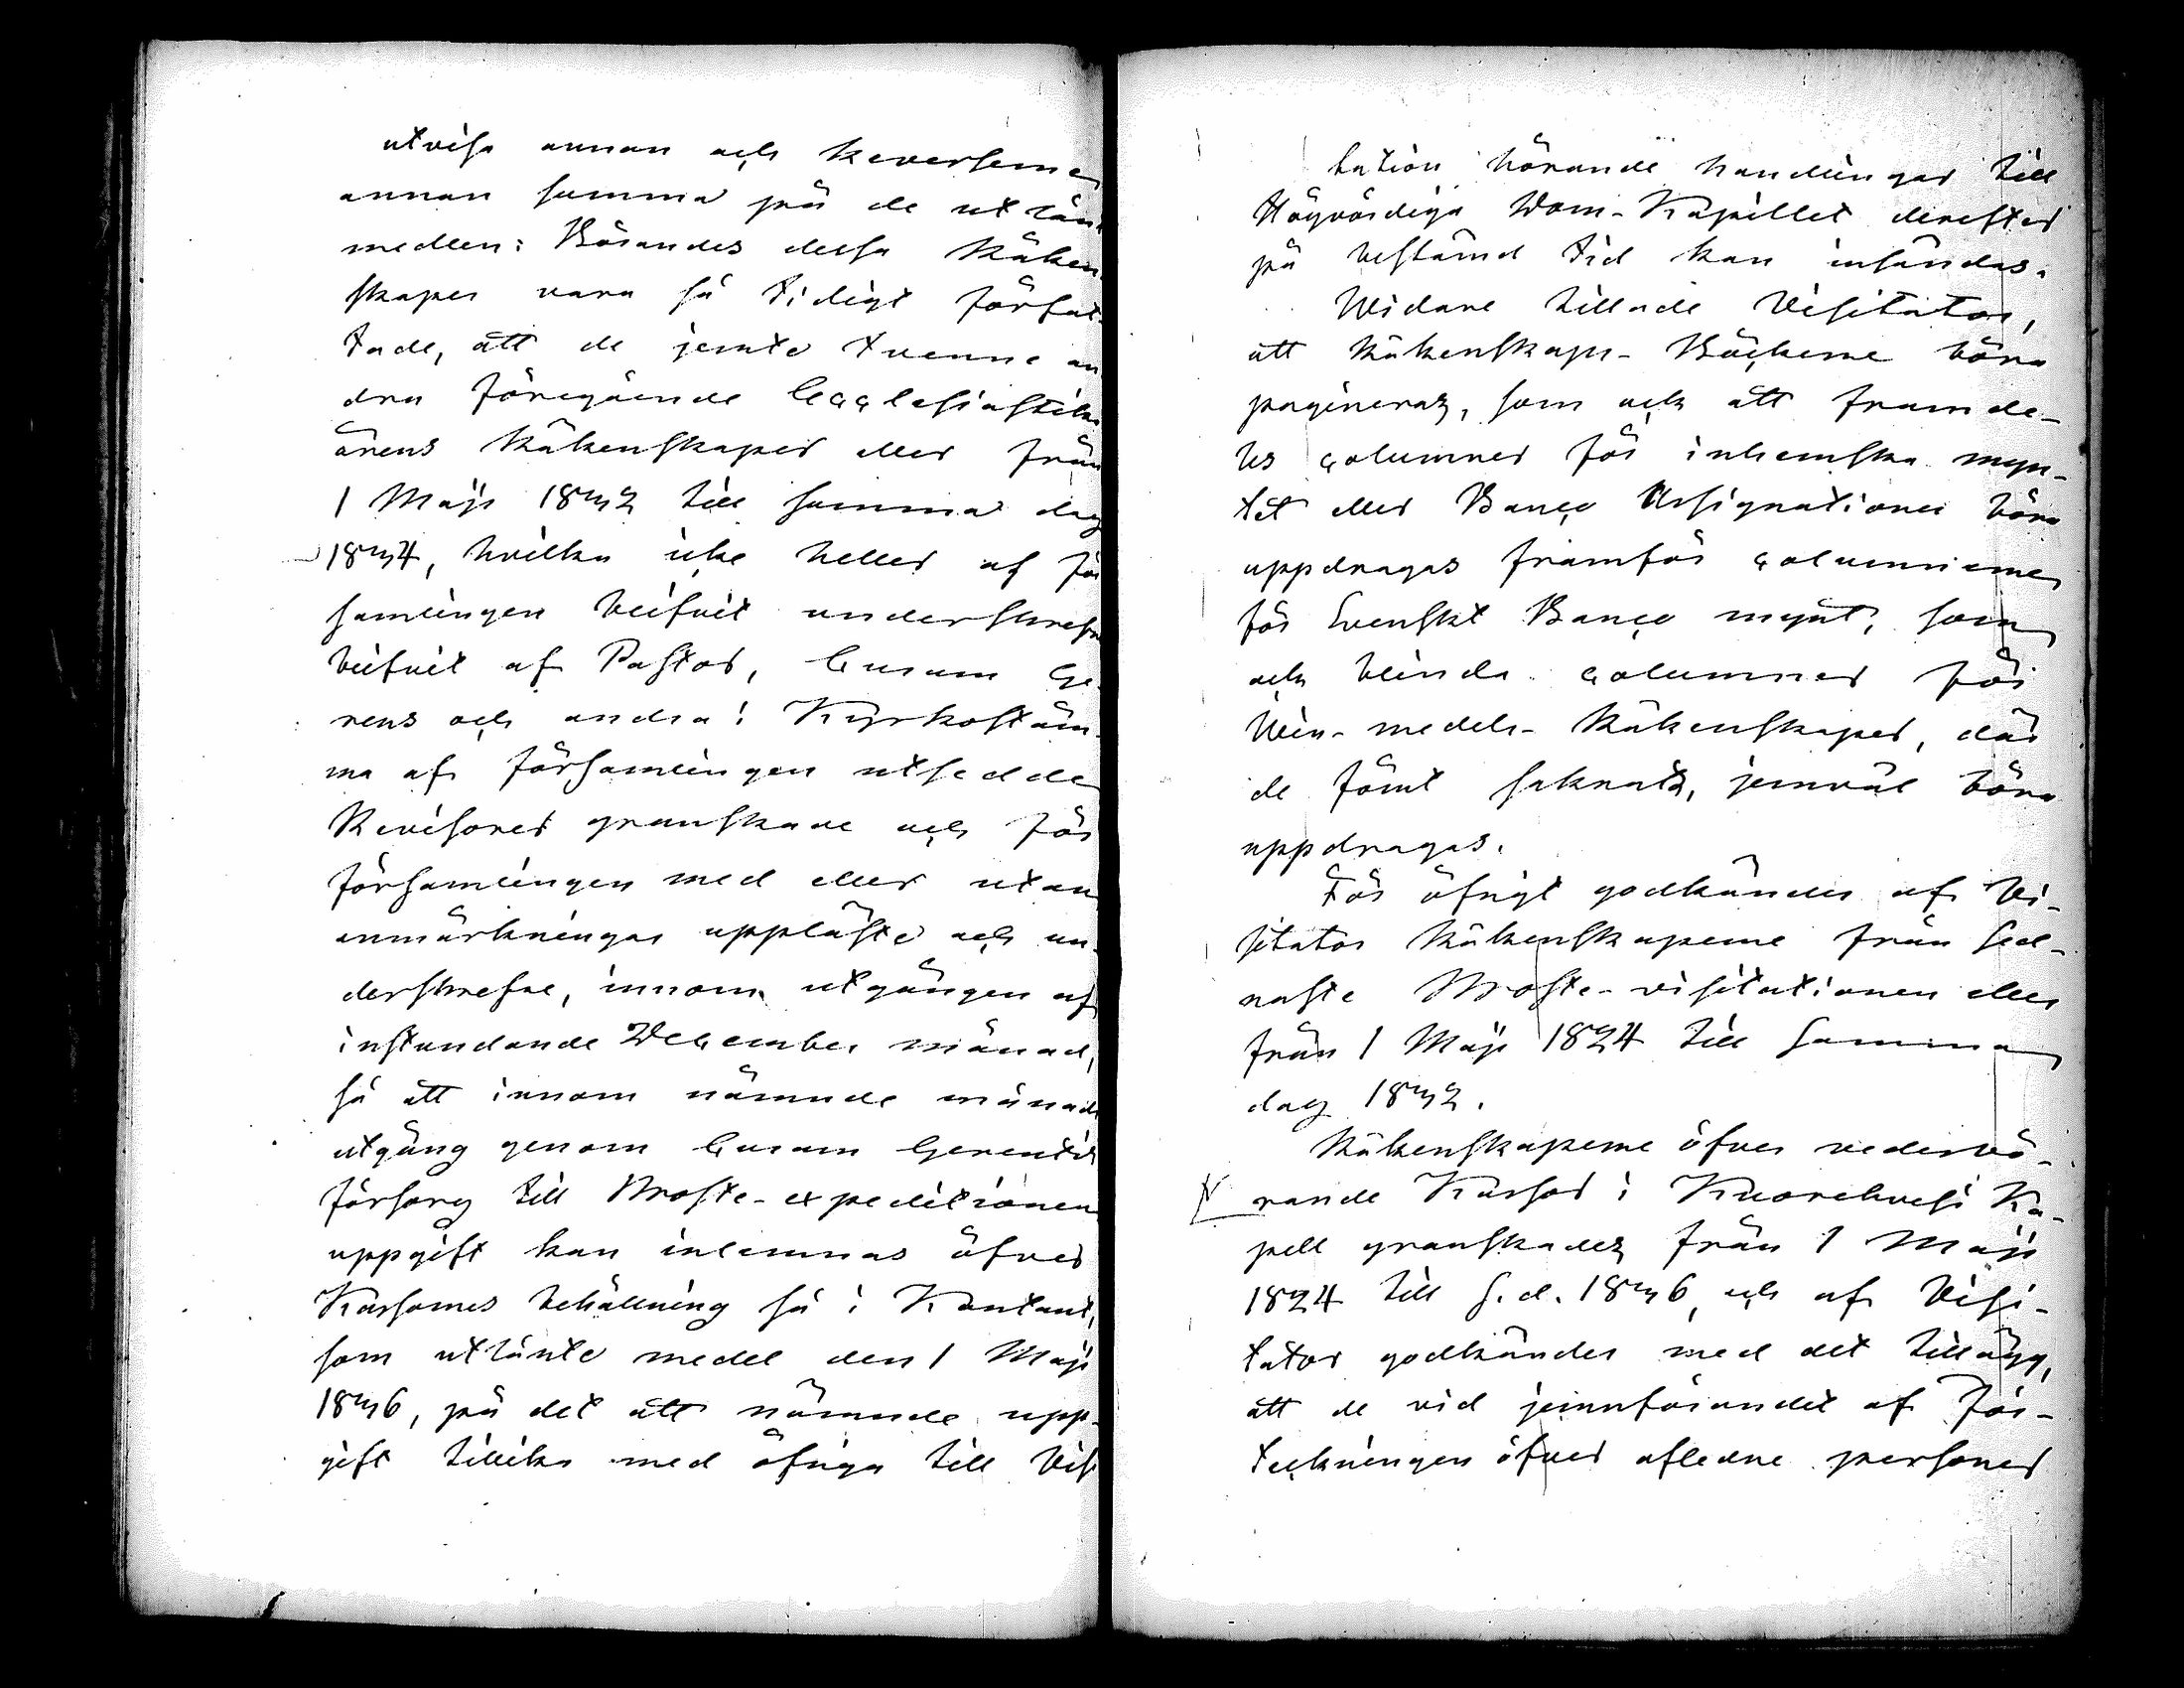 utvisa annan och Reverserne
annan summa på de utlånt
medlen: Börandes dessa Räken
skaper vara så tidigt förfat-
tade, att de jemte tvenne an
dra föregående Ecclesiastika
årens Räkenskaper eller från
1 Maji 1832 till samma dag
1834, hvilka icke heller af för
samlingen blifvit underskrefne
blifvit af Pastor, Curam Ge-
rens och andra i Kyrkostäm-
ma af församlingen utsedde
Revisorer granskade och för
församlingen med eller utan
anmärkningar uppläste och un-
derskrefne, innom utgången af
instundande December månad,
så att innom nämnde månads
utgång genom Curam Gerentis
försorg till Proste-expeditionen
uppgift kan inlemnas öfver
Kassornes behållning så i Kontant,
som utlånte medel den 1 Maji
1836, på det att nämnde upp-
gift tillika med öfriga till Visi
tation hörande handlingar till
Högvördiga Dom-Kapitlet derefter
på bestämd tid kan insändas.
Widare tillade Visitator,
att Räkenskaps-Böckerne böra
pagineras, som ock att framde-
les columner för inhemska myn-
tet eller Banco Assignationer böra
uppdragas framför columnerne
för Svenskt Banco mynt, som
och blinda columner för
Vin-medels-Räkenskaper, där
de förut saknats, jemväl böra
uppdragas.
För öfrigt godkändes af Vi-
sitator Räkenskaperne från sed-
naste Proste-visitationen eller
från 1 Maji 1824 till samma
dag 1832.
Räkenskaperne öfver vederbö-
rande Kassor i Kuorehvesi Ka-
pell granskades från 1 Maji
1824 till s.d. 1836, och af Visi-
tator godkändes med det tillägg,
att de vid jemnförandet af För-
teckningen öfver afledne personer